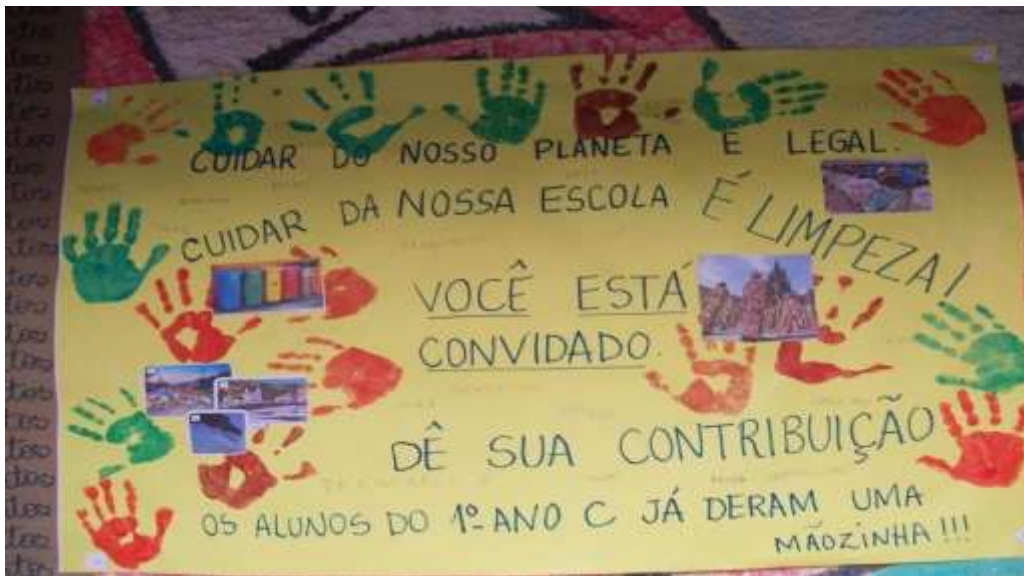 CUIDAR DO NOSSO PLANETA É LEGAL.
CUIDAR DA NOSSA ESCOLA É LIMPEZA!
VOCÊ ESTÁ
CONVIDADO.
DÊ SUA CONTRIBUIÇÃO
OS ALUNOS DO 1º ANO C JÁ DERAM UMA
MÃOZINHA!!!